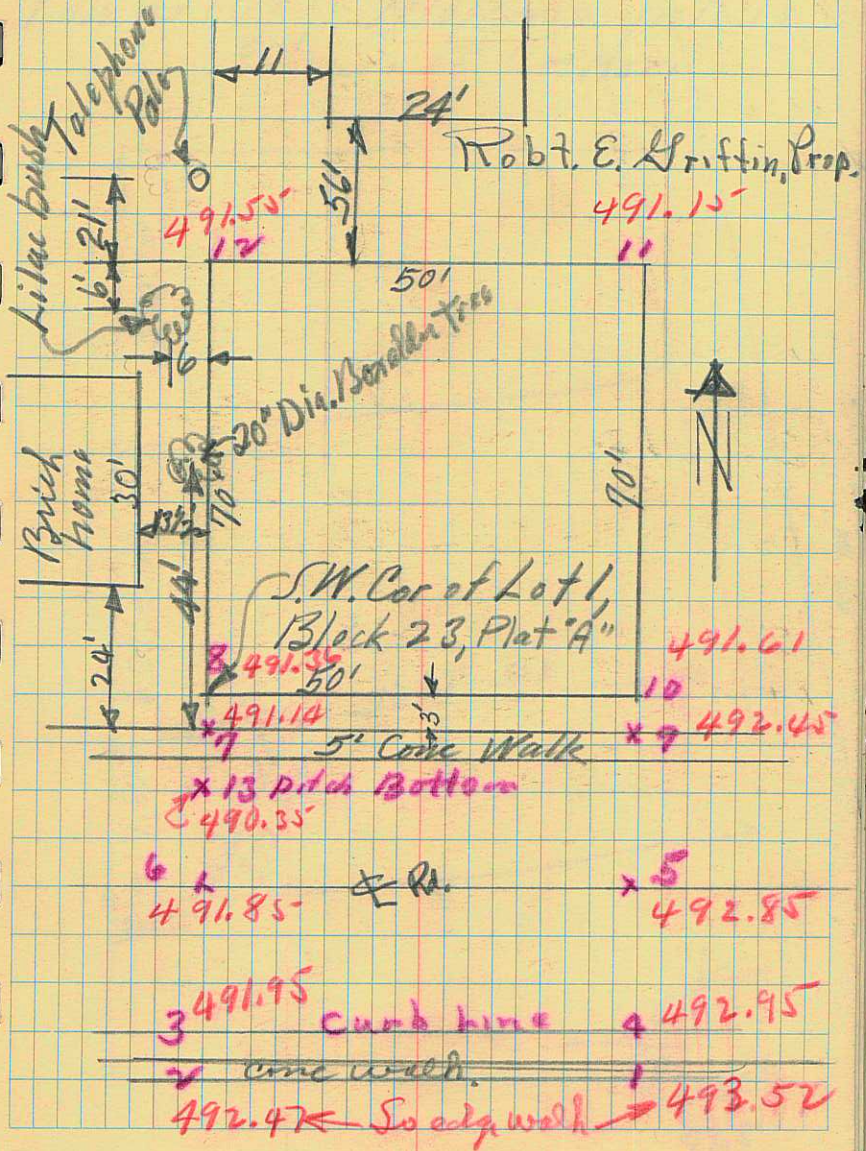 Telephone
Pole
11
24'
Robt. E. Griffin, Prop.
56'
Lilac bush
21'
6'
491.55
12
491.15
11
50'
6
20" Dia. Boxelder Tree
Brick
home
30'
13½'
70'
70'
N
44'
24'
S.W. Cor of Lot 1,
Block 23, Plat "A"
8 491.36
50'
491.61
10
491.14
3'
7
9 492.45
5' Conc Walk
x 13 Ditch Bottom
490.35
6
℄ Rd.
x 5
491.85
492.85
491.95
3
Curb Line
4 492.95
2
conc walk.
1
492.47
So edge walk
493.52